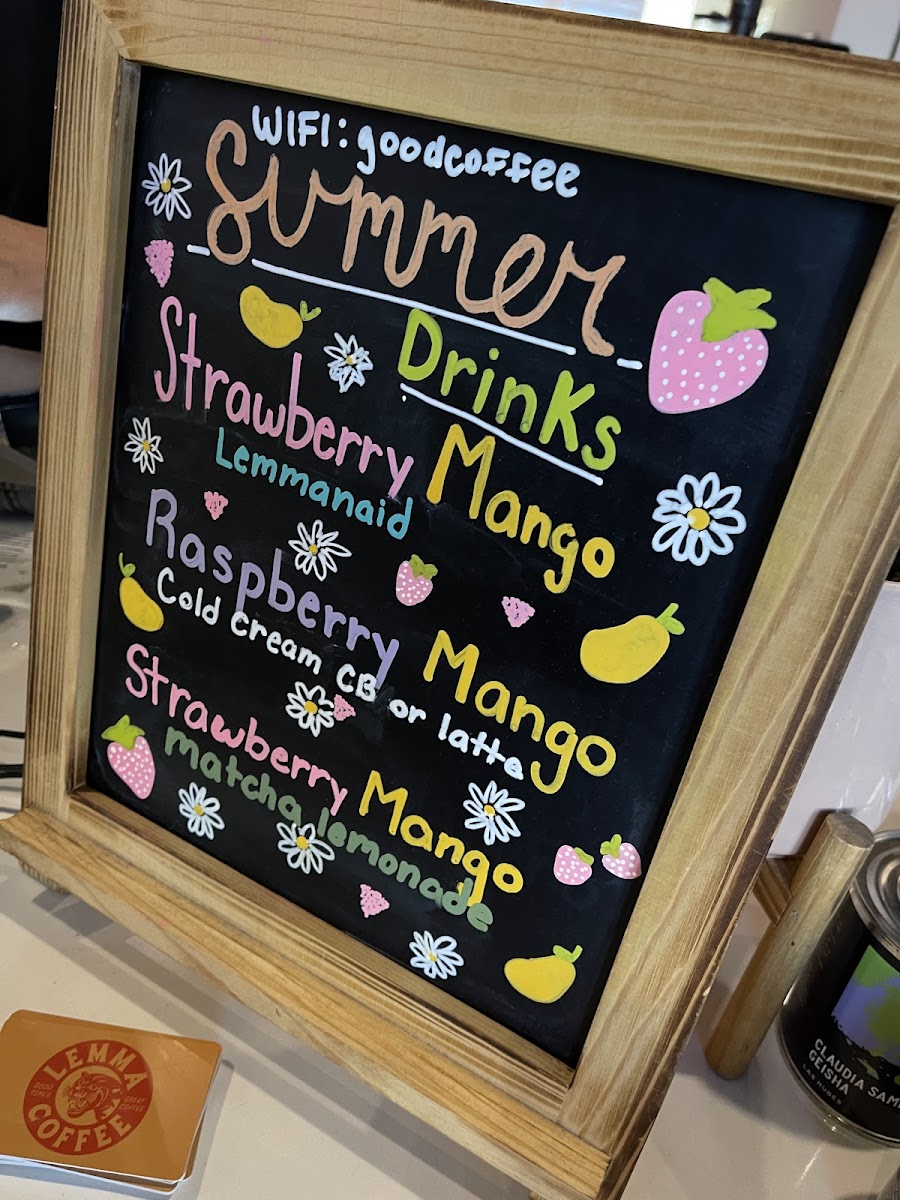 WIFI: goodcoffee
Summer
Drinks
Strawberry Mango
Lemmanaid
Raspberry Mango
Cold Cream CB or latte
Strawberry Mango
matcha lemonade
LEMMA
COFFEE
CLAUDIA SAM
GEISHA
LAS NUBES